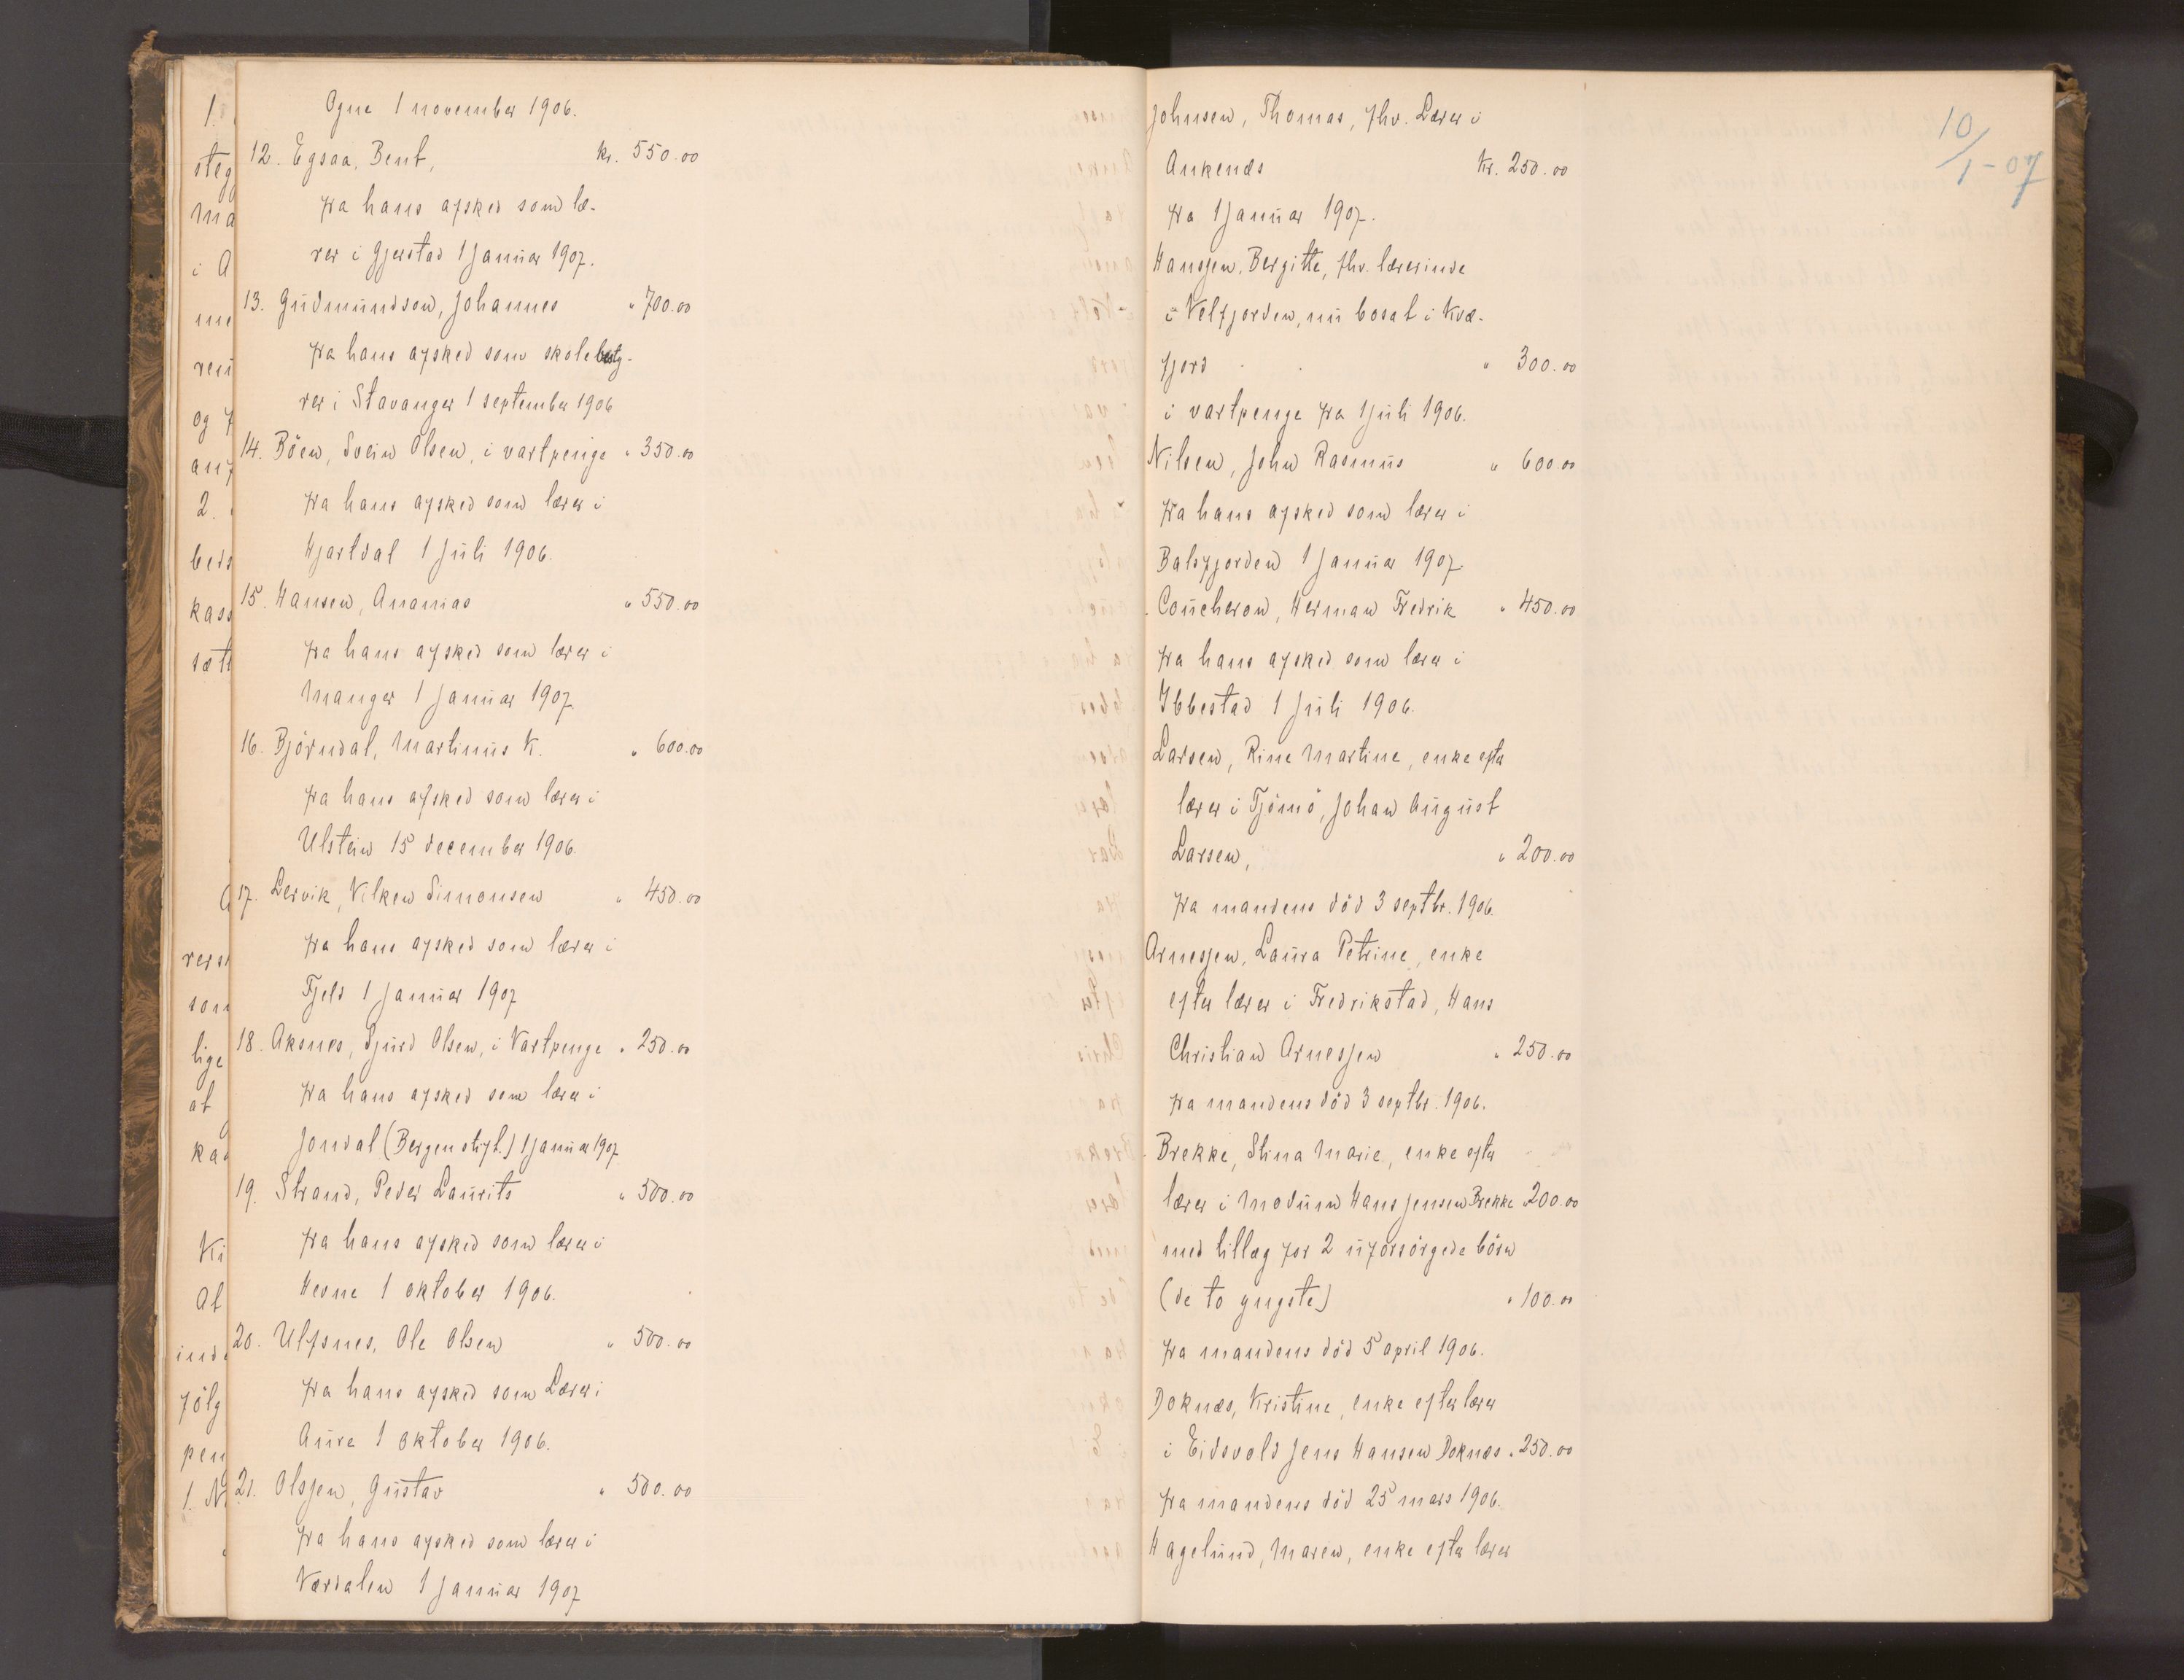 Ogne 1 november 1906.
12. Egsaa, Bent, kr. 550.00
fra hans afsked som læ-
rer i Gjerstad 1 Januar 1907.
13. Gudmundson, Johannes " 700.00
fra hans afsked som skolebesty-
rer i Stavanger 1 september 1906
14. Böen, Svein Olsen, i vartpenge " 350.00
fra hans afsked som lærer i
Hjartdal 1 Juli 1906.
15. Hansen, Ananias " 550.00
fra hans afsked som lærer i
Manger 1 Januar 1907.
16. Björndal, Martinus K. " 600.00
fra hans afsked som lærer i
Ulstein 15 december 1906.
17. Lervik, Vilken Simonsen " 450.00
fra hans afsked som lærer i
Fjeld 1 Januar 1907
18. Aksnes, Sjurd Olsen, i Vartpenge " 250.00
fra hans afsked som lærer i
Jondal (Bergen stift.) 1 Januar 1907
19. Strand, Peder Laurits " 500.00
fra hans afsked som lærer i
Hevne 1 oktober 1906.
20. Ulfsnes, Ole Olsen " 500.00
fra hans afsked som Lærer i
Aure 1 oktober 1906.
21. Olsen, Gustav " 500.00
fra hans afsked som lærer i
Værdalen 1 Januar 1907
10/1-07
Johnsen, Thomas, fhv. Lærer i
Ankenæs Kr. 250.00
fra 1 Januar 1907.
Hanssen, Bergitte, fhv. lærerinde
i Velfjorden, nu bosat i Kvæ-
fjord " 300.00
i vartpenge fra 1 Juli 1906.
Nilsen, John Rasmus " 600.00
fra hans afsked som lærer i
Balsfjorden 1 Januar 1907.
Coucheron, Herman Fredrik " 450.00
fra hans afsked som lærer i
Ibbestad 1 Juli 1906.
Larsen, Rine Martine, enke efter
lærer i Tjömö, Johan August
Larsen, " 200.00
fra mandens död 3 septbr. 1906.
Arnessen, Laura Petrine, enke
efter lærer i Fredrikstad, Hans
Christian Arnessen " 250.00
fra mandens död 3 septbr. 1906.
Brekke, Stina Marie, enke efter
lærer i Modum Hans Jensen Brekke 200.00
med tillæg for 2 uforsörgede börn
(de to yngste) " 100.00
fra mandens död 5 april 1906.
Doknæs, Kristine, enke efter lærer
i Eidsvold Jens Hansen Doknæs " 250.00
fra mandens död 25 mars 1906.
Hagelund, Maren, enke efter lærer